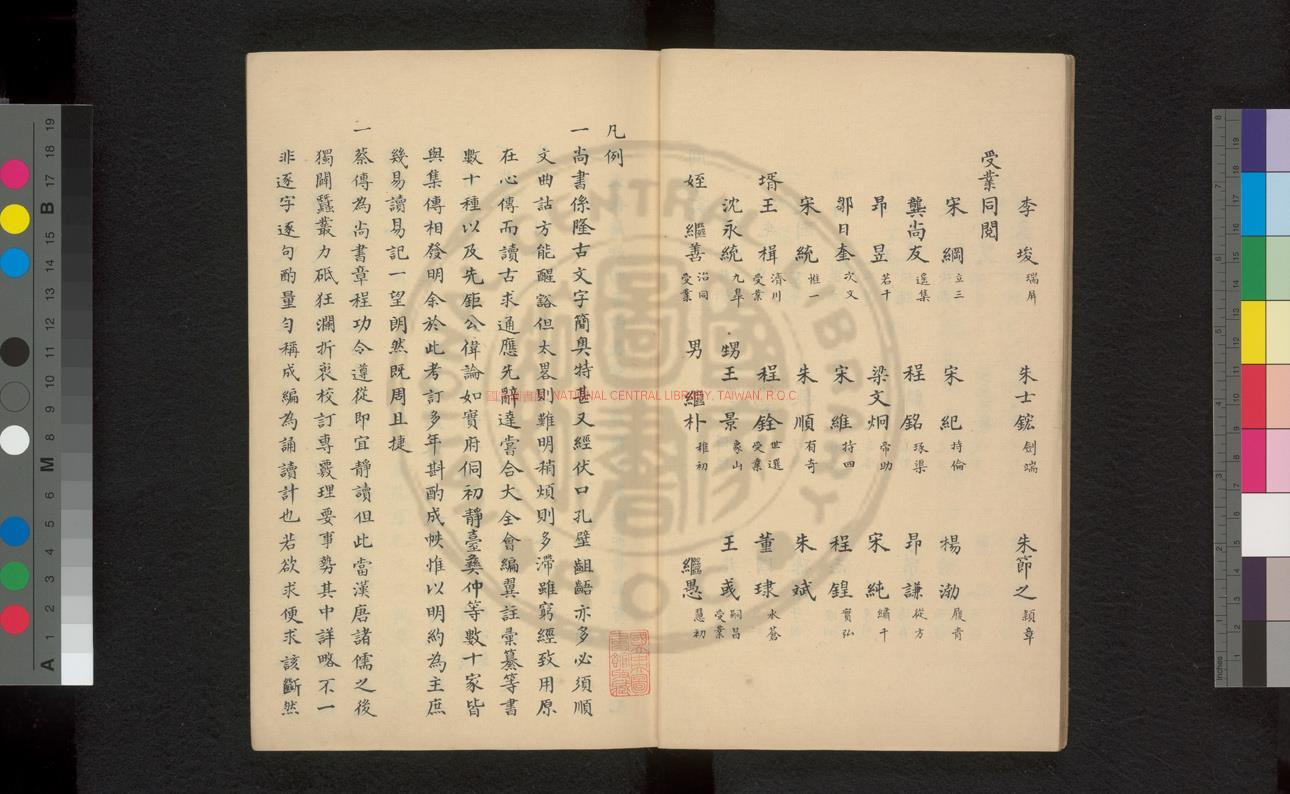 李埈 瑞屏 朱士鋐 劍端 朱節之 穎章
受業同閱
宋綱 立三 宋紀 持倫 楊渤 履青
龔尚友 遙集 程銘 琢渠 昂謙 從方
昂昱 若千 梁文炯 帝助 宋純 繡千
鄒日奎 次文 宋維 持四 程鍠 實弘
宋統 惟一 朱順 有奇 朱斌
壻王楫 濟川受業 程銓 世選受業 董琜 水蒼
沈永統 九皐 甥王景 象山 王彧 嗣昌受業
姪繼善 治同受業 男繼朴 稚初 繼愚 慧初
凡例
一尚書係隆古文字簡奥特甚又經伏口孔壁齟齬亦多必須順
文曲詁方能醒豁但太畧則雖明稍煩則多滯雖窮經致用原
在心傳而讀古求通應先辭達嘗合大全會編翼註彙纂等書
數十種以及先鉅公偉論如實府侗初靜臺彝仲等數十家皆
與集傳相發明余於此考訂多年斟酌成帙惟以明約為主庶
幾易讀易記一望朗然既周且捷
一蔡傳為尚書章程功令遵從即宜靜讀但此當漢唐諸儒之後
獨闢蠶叢力砥狂瀾折衷校訂專覈理要事勢其中詳略不一
非逐字逐句酌量勻稱成編為誦讀計也若欲求便求該斷然
國家圖書館 NATIONAL CENTRAL LIBRARY, TAIWAN, R.O.C